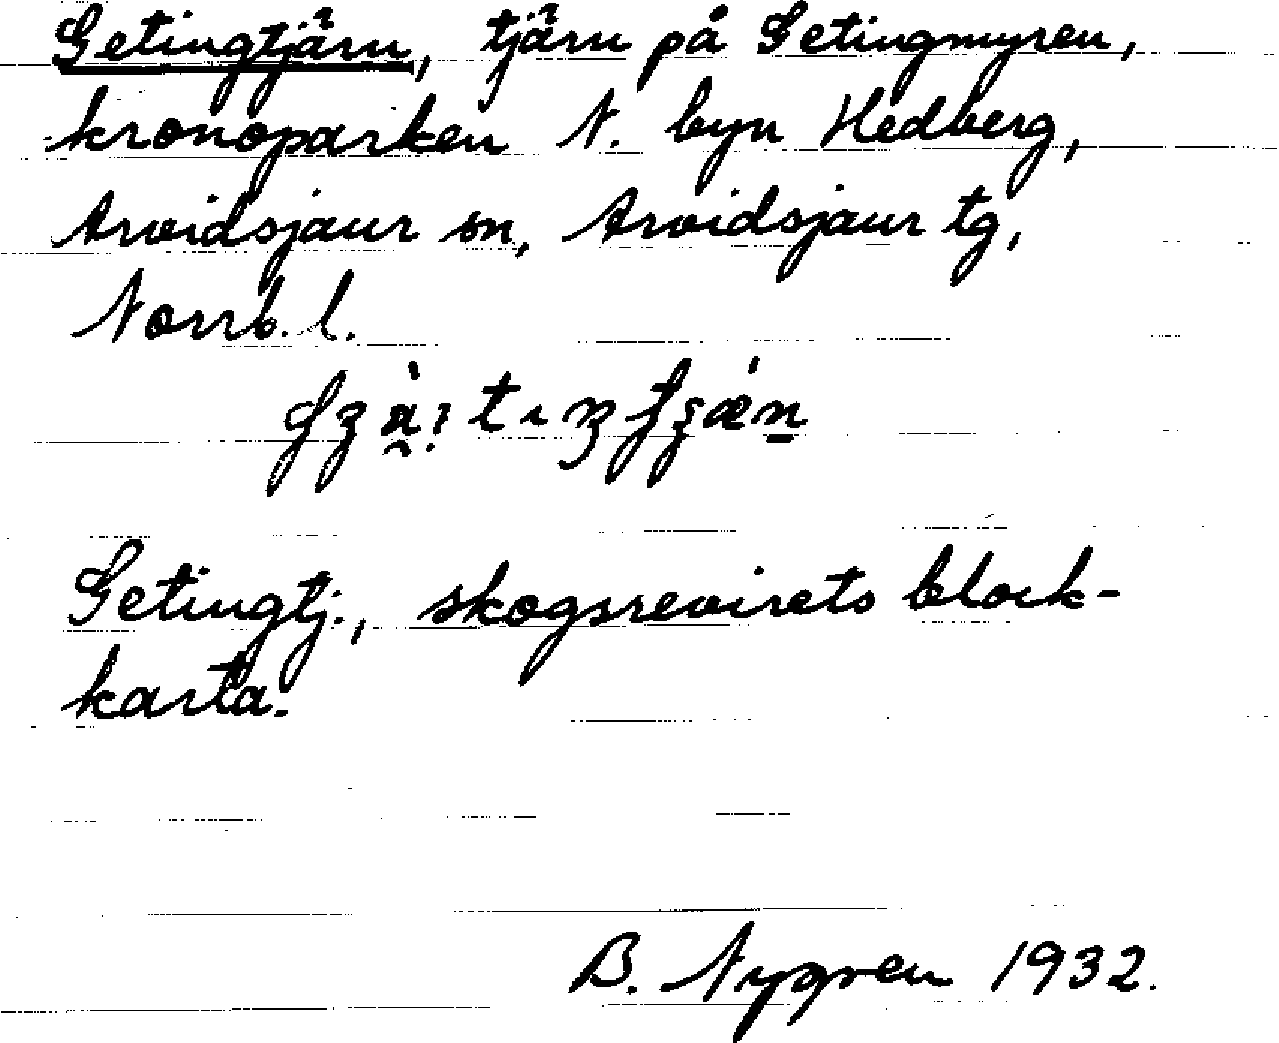 Getingtjärn, tjärn på Getingmyren,
kronoparken N. byn Hedberg,
Arvidsjaur sn, Arvidsjaur tg,
Norrb. l.
Getingtj., skogsrevirets block-
karta.
B. Nygren 1932.